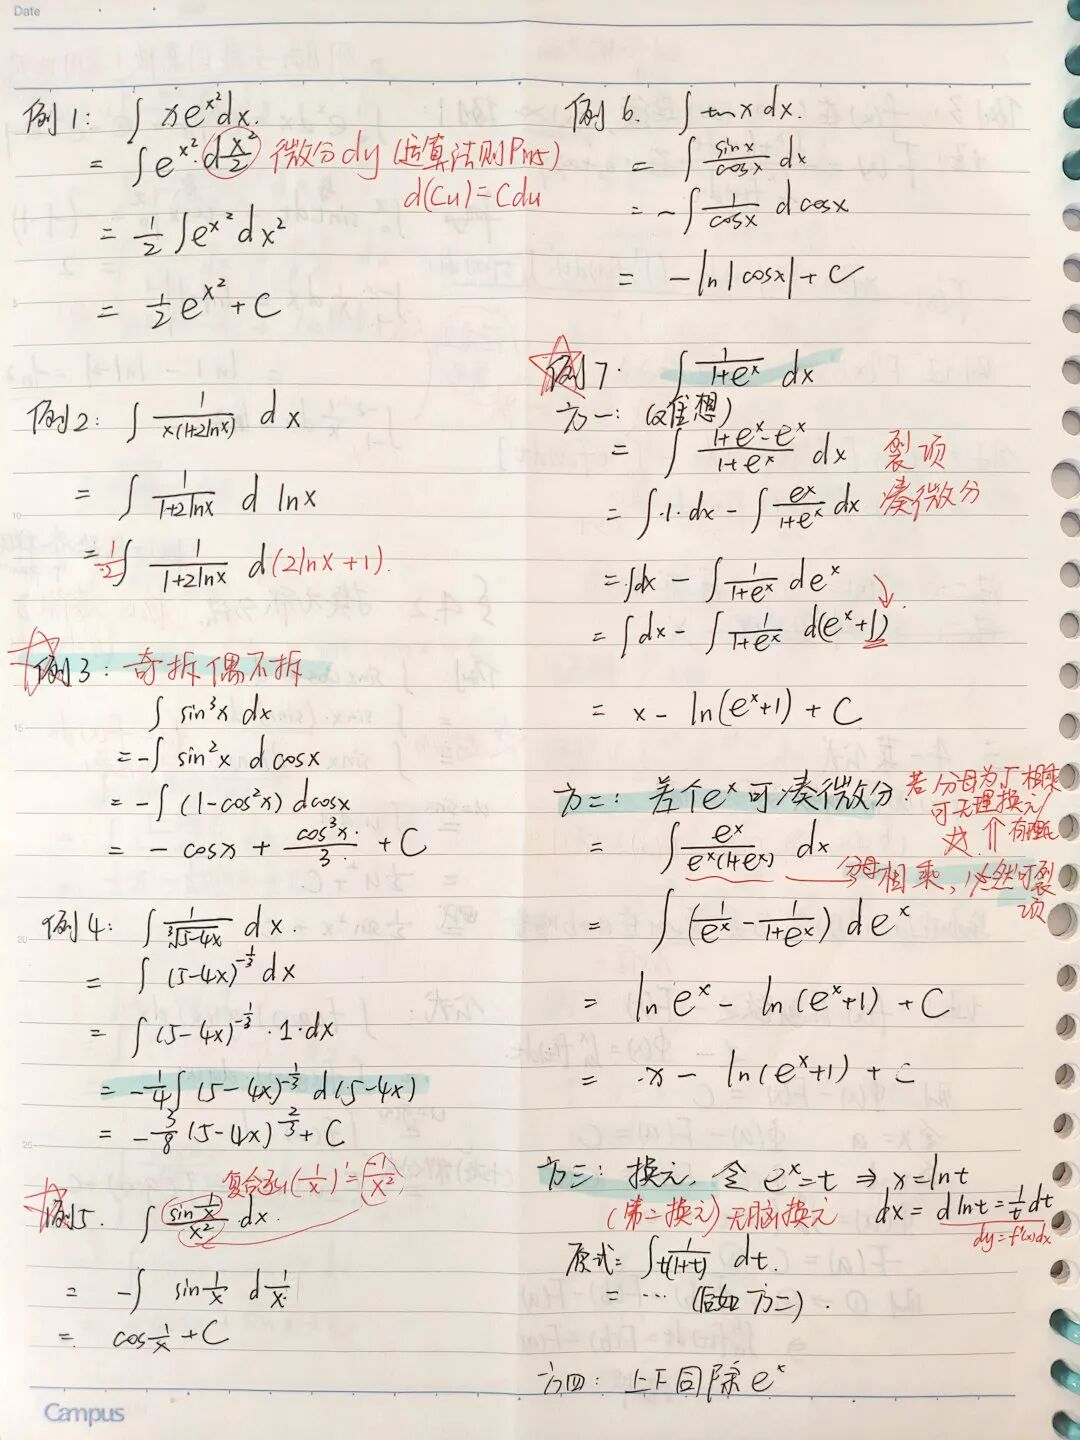 Date
例1: ∫ x e^{x²} dx.
= ∫ e^{x²} · d x²/2 微分dy (运算法则P115)
d(Cu) = Cdu
= 1/2 ∫ e^{x²} d x²
= 1/2 e^{x²} + C
例2: ∫ 1/(x(1+2lnx)) d x
= ∫ 1/(1+2lnx) d lnx
= 1/2 ∫ 1/(1+2lnx) d(2lnx+1).
例3: 奇拆偶不拆
∫ sin³x dx
= -∫ sin²x d cosx
= -∫ (1-cos²x) dcosx
= - cosx + cos³x/3 + C
例4: ∫ 1/∛(5-4x) dx.
= ∫ (5-4x)^{-1/3} dx
= ∫ (5-4x)^{-1/3} · 1 · dx
= -1/4 ∫ (5-4x)^{-1/3} d(5-4x)
= -3/8 (5-4x)^{2/3} + C
复合函 (1/x)' = -1/x²
例5. ∫ sin(1/x)/x² dx.
= -∫ sin 1/x d 1/x
= cos 1/x + C
Campus
例6. ∫ tanx dx.
= ∫ sinx/cosx dx
= -∫ 1/cosx d cosx
= -ln|cosx| + C
例7. ∫ 1/(1+e^x) dx
方一: (难想)
= ∫ (1+e^x-e^x)/(1+e^x) dx 裂项
= ∫·1·dx - ∫ e^x/(1+e^x) dx 凑微分
= ∫dx - ∫ 1/(1+e^x) de^x
= ∫dx - ∫ 1/(1+e^x) d(e^x+1)
= x - ln(e^x+1) + C
方二: 差个e^x可凑微分. 若分母为√相乘
可无理换元/
有理
= ∫ e^x/(e^x(1+e^x)) dx 分母相乘, 必然可裂项
= ∫ (1/e^x - 1/(1+e^x)) de^x
= ln e^x - ln(e^x+1) + C
= x - ln(e^x+1) + C
方三: 换元, 令 e^x=t ⇒ x=lnt
(第二换元) 无脑换元 dx = d lnt = 1/t dt
dy=f'(x)dx
原式= ∫ 1/(t(1+t)) dt.
= ⋯ (后如方二).
方四: 上下同除e^x